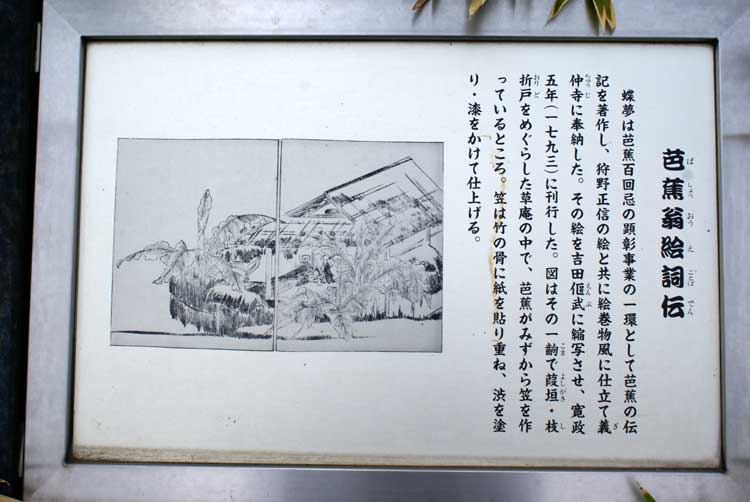 芭蕉翁絵詞伝
ば しょう おう え ことば でん
蝶夢は芭蕉百回忌の顕彰事業の一環として芭蕉の伝
記を著作し、狩野正信の絵と共に絵巻物風に仕立て義
仲寺に奉納した。その絵を吉田偃武に縮写させ、寛政
五年(一七九三)に刊行した。図はその一齣で葭垣・枝
折戸をめぐらした草庵の中で、芭蕉がみずから笠を作
っているところ。笠は竹の骨に紙を貼り重ね、渋を塗
り・漆をかけて仕上げる。